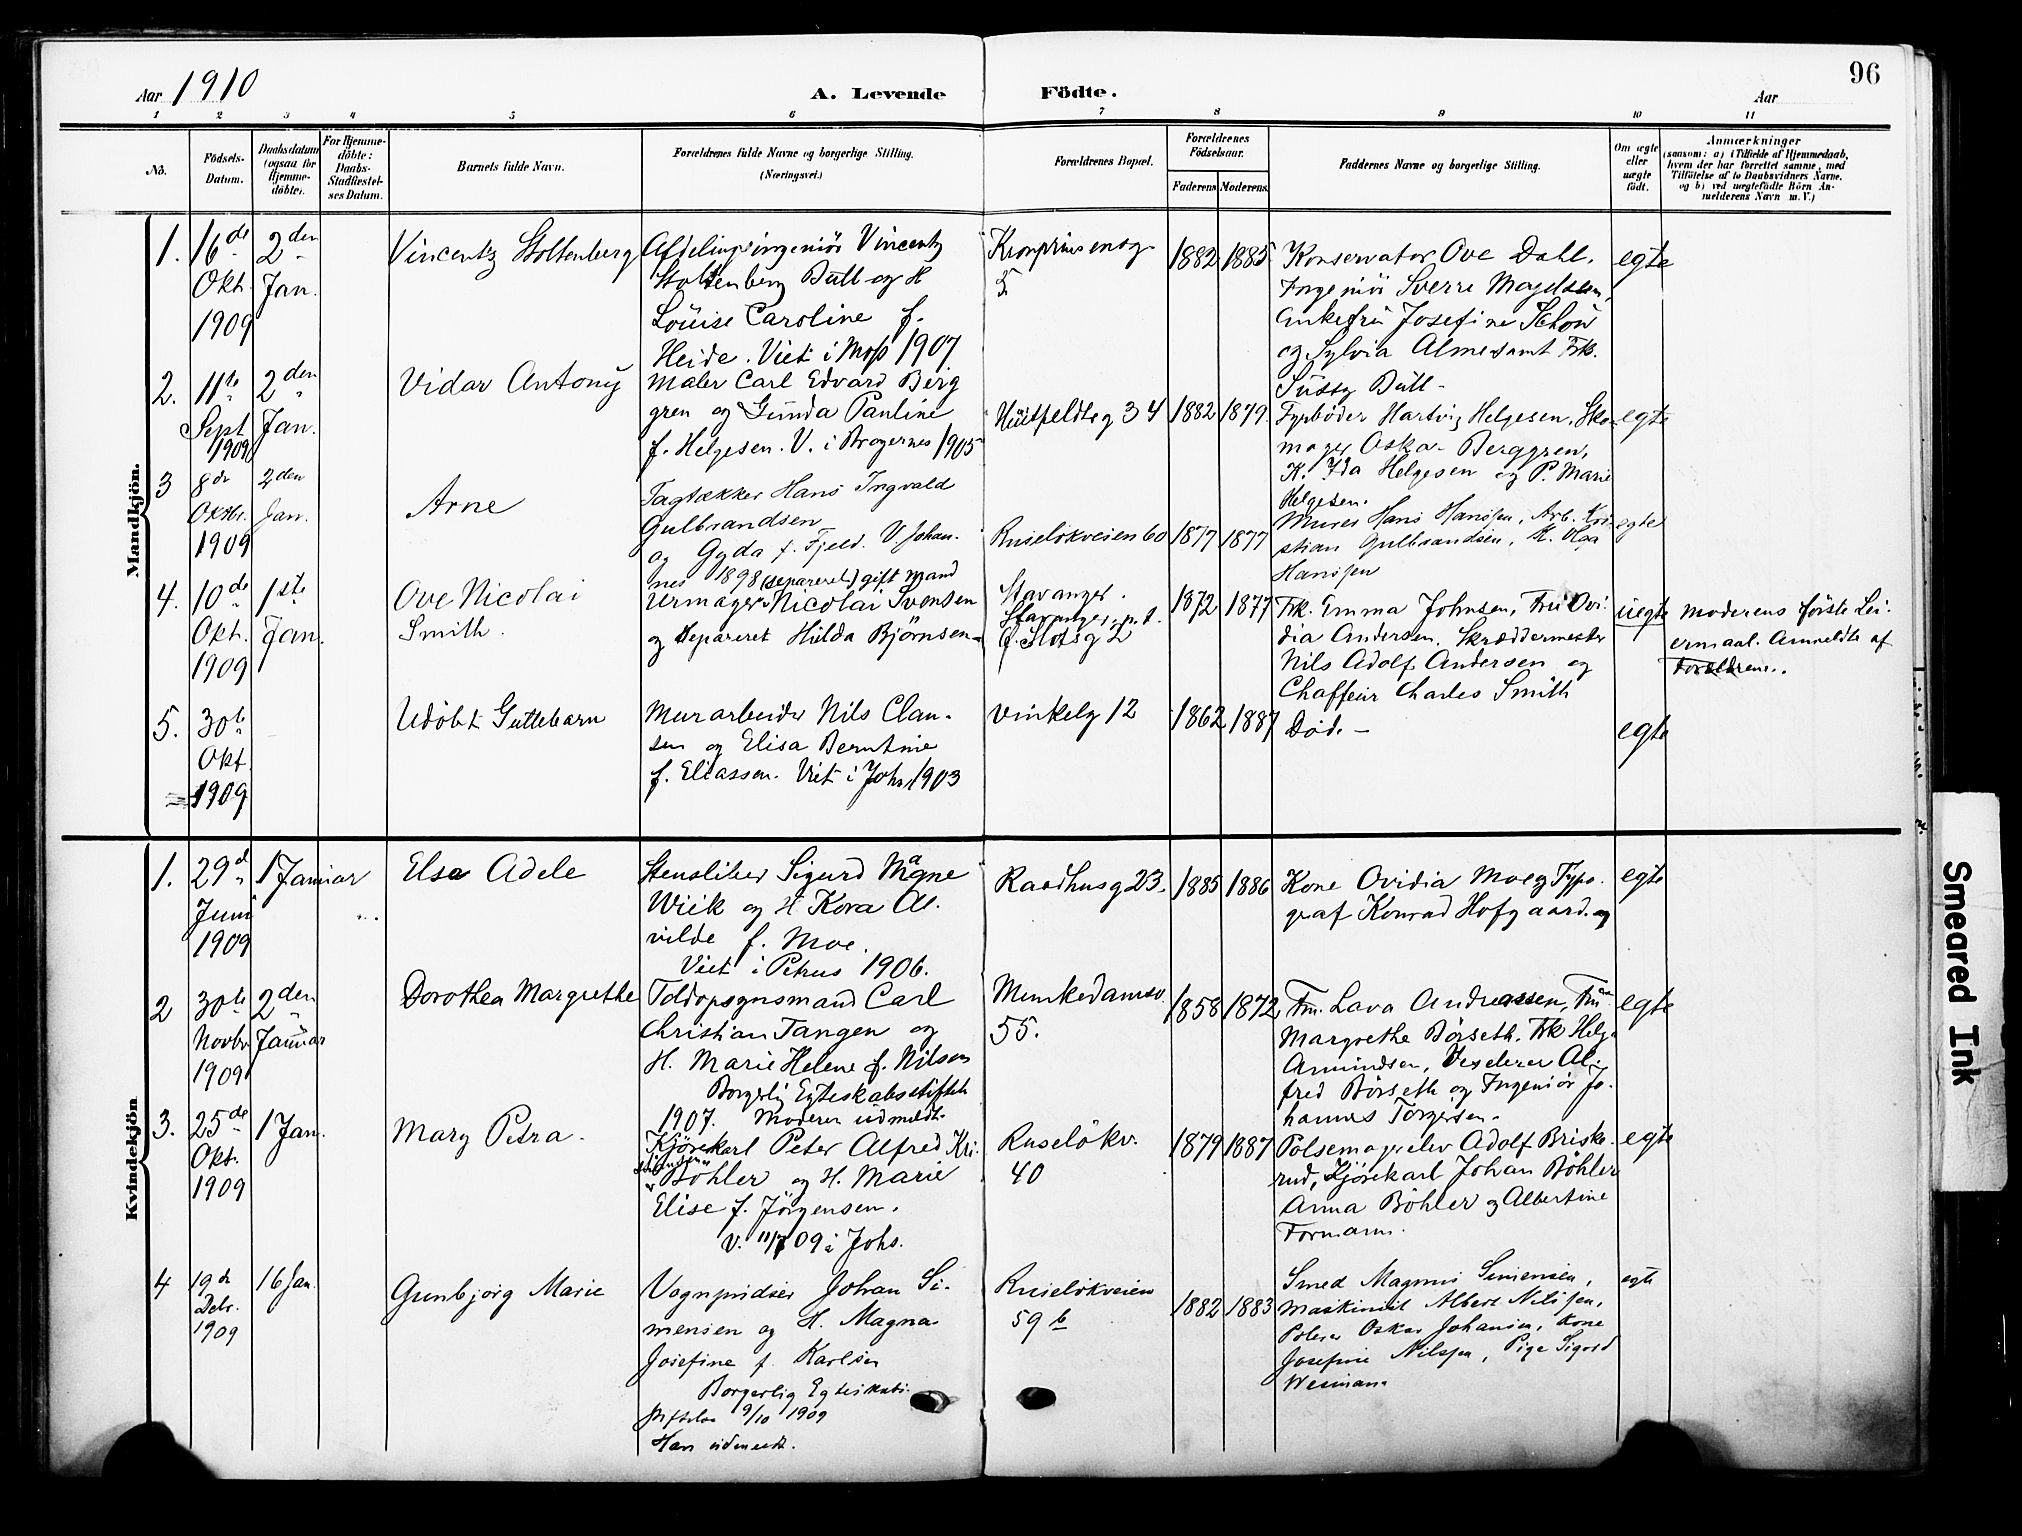 96
Aar 1910
A. Levende Födte.
Aar
1 2 3 4 5 6 7 8 9 10 11
No.
Födsels-
Datum.
Daabsdatum
(ogsaa for
Hjemme-
döbte).
For Hjemme-
döbte:
Daabs-
Stadfæstel-
ses Datum.
Barnets fulde Navn.
Forældrenes fulde Navne og borgerlige Stilling.
(Næringsvei.)
Forældrenes Bopæl.
Forældrenes
Födselsaar.
Faderens.
Moderens.
Faddernes Navne og borgerlige Stilling.
Om ægte
eller
uægte
födt.
Anmærkninger
(saasom: a) i Tilfælde af Hjemmedaab,
hvem der har forrettet samme, med
Tilföielse af to Daabsvidners Navne,
og b) ved uægtefödte Börn An-
melderens Navn m. V.)
Mandkjön.
1.
16de
Okt.
1909
2den
Jan.
Vincentz Stoltenberg
Afdelingsingeniör Vincentz
Stoltenberg Bull og H
Louise Caroline f.
Heide. Viet i Moss 1907
Kronprinsensg.
5.
1882
1885
Konservator Ove Dahl,
Ingeniör Sverre Magelssen,
Enkefru Josefine Schow
og Sylvia Alme samt Frk.
Sussy Bull -
egte
2.
11te
Sept.
1909
2den
Jan.
Vidar Antony
Maler Carl Edvard Berg
gren og Gunda Pauline
f. Helgesen. V. i Bragernes 1905
Huitfeldtsg 34
1882
1879.
Fyrböder Hartvig Helgesen, Sko
mager Oskar Berggren,
K. Ida Helgesen og P. Marie
Helgesen.
egte
3
8de
Oktbr.
1909
2den
Jan.
Arne
Tagtækker Hans Ingvald
Gulbrandsen
og Gyda f. Fjeld. V. Johan.
nes 1898
Ruselökveien 60
1877
1877
Murer Hans Hanssen, Arb. Kri
stian Gulbrandsen, K. Olga
Hanssen
egte
4.
10de
Okt.
1909
1ste
Jan.
Ove Nicolai
Smith.
(separeret) gift mand
Urmager Nicolai Svensen
og separeret Hilda Björnsen
Stavanger.
Stavanger, p.t.
f. Slotsg 2
1872
1877
Frk. Emma Johnsen, Fru Ovi-
dia Andersen, Skræddermester
Nils Adolf Andersen og
Chaffeur Charles Smith
uegte
Moderens förste Lei-
ermaal. Anmeldt af
Forældrene.
5.
30te
Okt.
1909
Udöbt Guttebarn
Murarbeider Nils Clau-
sen og Elisa Berntine
f. Eliassen. Viet i Joh. 1903
Vinkelg 12
1862
1887
Död. -
egte
Kvindekjön
1.
29de
Juni
1909
1 Januar
Elsa Adele
Stensliber Sigurd Magne
Wiik og H Kora Al.
vilde f. Moe.
Viet i Petrus 1906.
Raadhusg 23.
1885
1886
Kone Ovidia Moe og Typo-
graf Konrad Hofgaard. og
egte
2
30te
Novbr
1909
2den
Januar
Dorothea Margrethe
Toldopsynsmand Carl
Christian Tangen og
H. Marie Helene f. Nilsen
Borgerlig Egteskabsstiftet
1907. Moderen udmeldt.
Munkedamsv.
55.
1858
1872
Fru Lava Andreassen, Fru
Margrethe Börseth, Frk Helga
Amundsen, Vexelerer Al.
fred Börseth og Ingeniör Jo.
hannes Torgersen.
egte
3.
25de
Okt.
1909
1 Jan.
Mary Petra.
Kjörekarl Peter Alfred Kri.
Böhler og H. Marie
Elise f. Jörgensen.
V. 11/7 09 i Johs.
Ruselökv.
40
1879
1887
Pölsemagerelev Adolf Briske
rud, Kjörekarl Johan Böhler
Anna Böhler og Albertine
Formann.
egte
4
19de
Debr.
1909
16 Jan.
Gunbjörg Marie
Vognpudser Johan Si-
mensen og H. Magna
Josefine f. Karlsen
Borgerlig Egteskabs.
stiftelse 9/10 1909
Han udmeldt.
Ruselökveien
59 b
1882
1883
Smed Magnus Simensen,
Maskinist Albert Nilssen,
Polerer Oskar Johansen, Kone
Josefine Nilssen, Pige Sigrid
Wesmann
egte
Smeared Ink